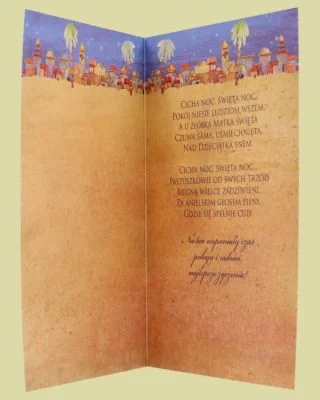 CICHA NOC, ŚWIĘTA NOC,
POKÓJ NIESIE LUDZIOM WSZEM,
A U ŻŁÓBKA MATKA ŚWIĘTA
CZUWA SAMA, UŚMIECHNIĘTA,
NAD DZIECIĄTKA SNEM.
CICHA NOC, ŚWIĘTA NOC,
PASTUSZKOWIE OD SWYCH TRZÓD
BIEGNĄ WIELCE ZADZIWIENI,
ZA ANIELSKIM GŁOSEM PIENI,
GDZIE SIĘ SPEŁNIŁ CUD.
Na ten wspaniały czas
pokoju i radości
najlepsze życzenia!